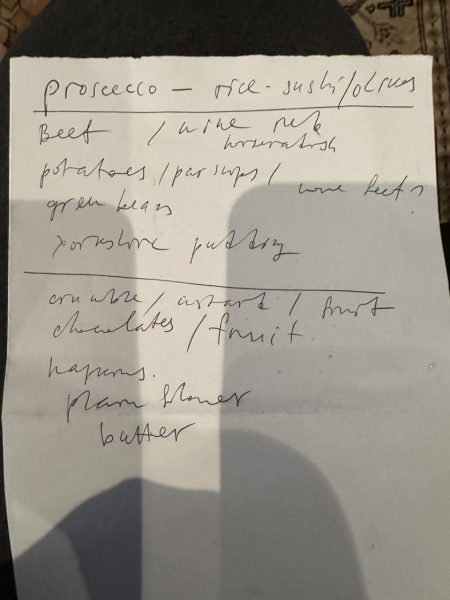 prosecco - rice-sushi/olives
Beef / wine red
horseradish
potatoes / parsnips /
green beans
yorkshire pudding
crumble / custard / fruit
chocolates / fruit
napkins.
plain flour
butter